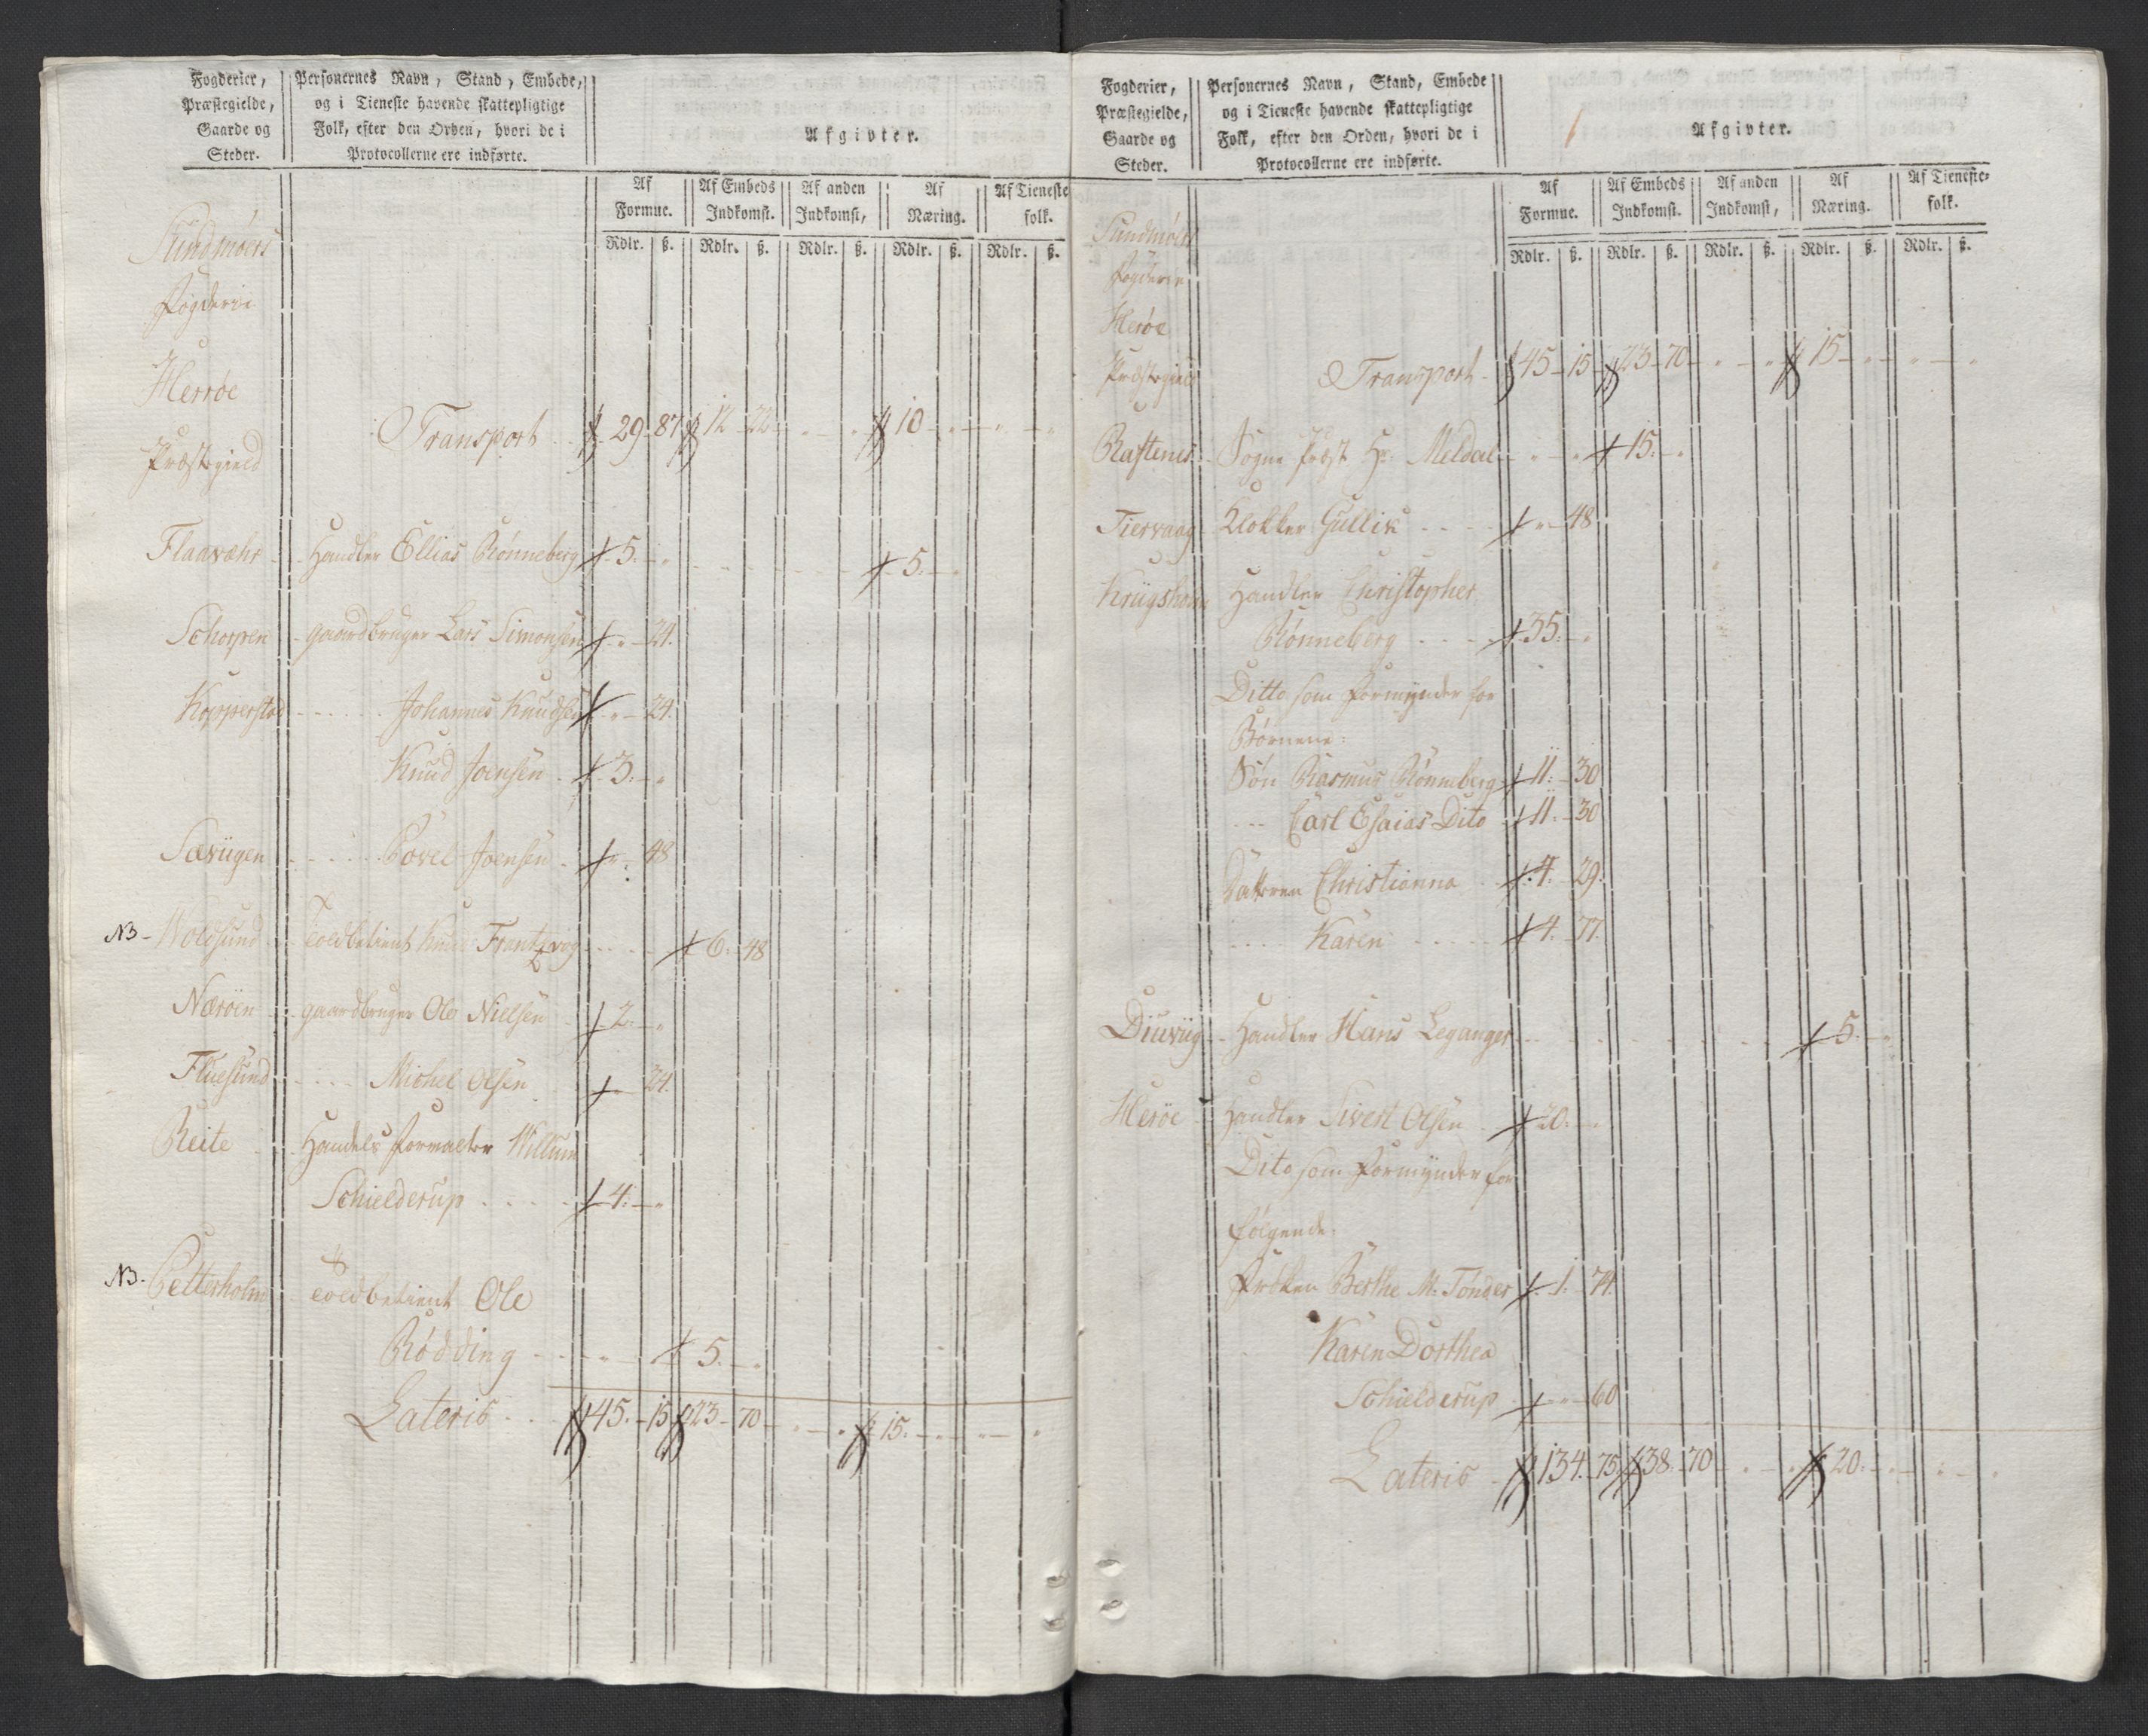 Fogderier, Præstegielde, Gaarde og Steder.
Personernes Navn, Stand, Embede, og i Tieneste havende skattepligtige Folk, efter den Orden, hvori de i Protocollerne ere indførte.
Afgivter.
Af Formue. Af Embeds Indkomst. Af anden Indkomst, Af Næring. Af Tieneste folk.
Rdlr. ß. Rdlr. ß. Rdlr. ß. Rdlr. ß. Rdlr. ß.
Sundmøers
Fogderie
Herrøe
Præstegield
Transport 29 87 12 22 10
Flaavæhr Handler Ellias Rønneberg 5. 5.
Schorpen gaardbruger Lars Simonsen 24.
Kopperstad Johannes Knudsen 24.
Knud Joensen 3.
Sævügen Povel Joensen 48
NB Woldsund toldbetient Frantzvog 6. 48
Nærøen gaardbruger Ole Nielsen 2.
Fluesund Michel Olsen 24.
Reite Handels forvalter Willum
Schielderup 4.
NB. Petterholm toldbetient Ole
Rødding 5.
Lateris 45. 15 23 70 15.
Fogderier, Præstegielde, Gaarde og Steder.
Personernes Navn, Stand, Embede og i Tieneste havende skattepligtige Folk, efter den Orden, hvori de i Protocollerne ere indførte.
Afgivter.
Af Formue. Af Embeds Indkomst. Af anden Indkomst, Af Næring. Af Tieneste- folk.
Rdlr. ß. Rdlr. ß. Rdlr. ß. Rdlr. ß. Rdlr. ß.
Sundmøers
Fogderie
Herøe
Præstegield
Transport 45 15 23 70 15
Raftenes Sogne Præst Hr. Meldal 15.
Tiervaag Klokker Gullik 48
Krügsholm Handler Christopher
Rønneberg 35.
Ditto som Formynder for
Børnene:
Søn Rasmus Rønneberg 11. 30
Carl Esaias Dito 11. 30
Datteren Christianna 4. 29.
Karen 4. 77.
Diuvüg Handler Hans Leganger 5.
Herøe Handler Sivert Olsen 20.
Dito som Formynder for
følgende.
Frøken Berthe M. Tønder 1. 74.
Karen Dorthea
Schielderup 60
Lateris 134. 75 38. 70 20.